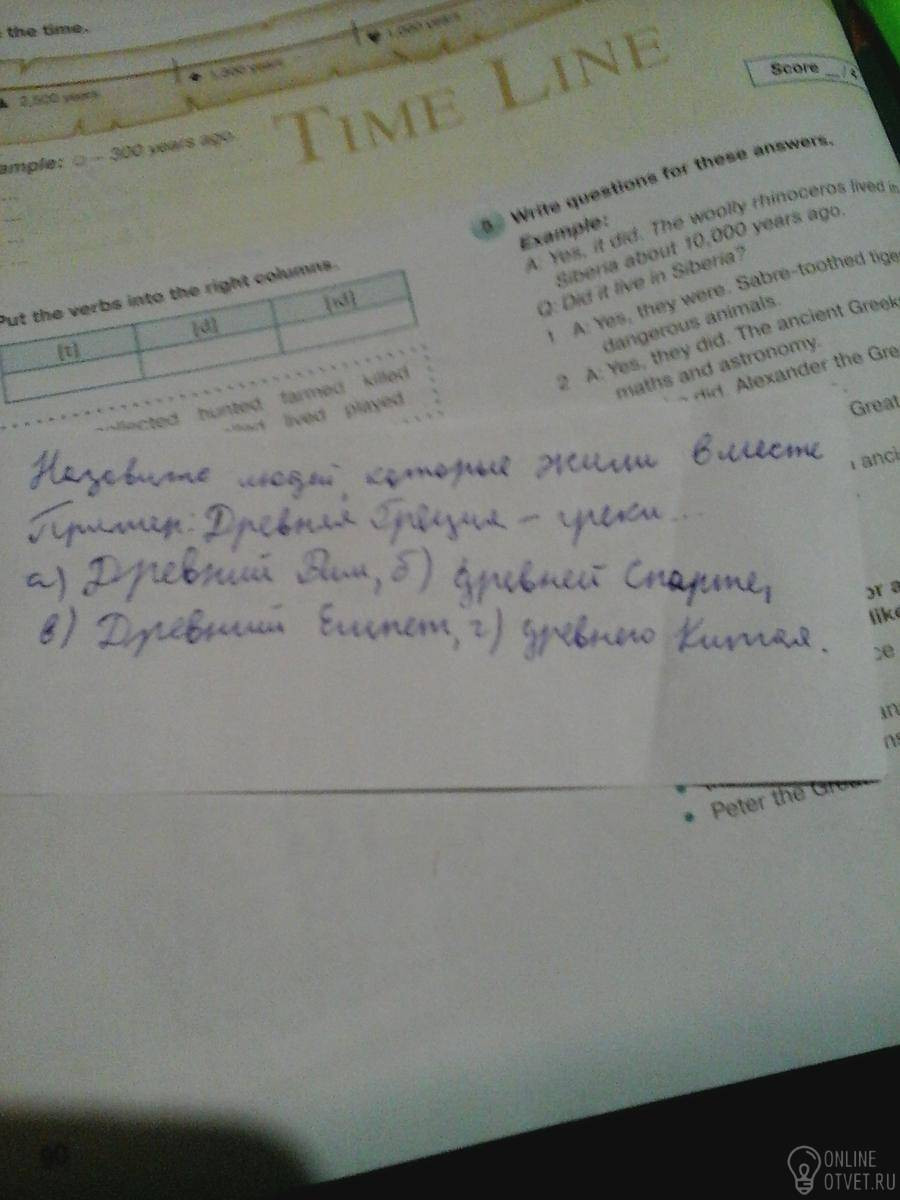 the time.
2,500 years
1,300 years
1,000 years
TIME LINE
Score __/
ample: ☺ – 300 years ago.
Put the verbs into the right columns.
[t] [d] [ɪd]
hunted farmed killed
lived played
8 Write questions for these answers.
Example:
A: Yes, it did. The woolly rhinoceros lived in
Siberia about 10,000 years ago.
Q: Did it live in Siberia?
1 A: Yes, they were. Sabre-toothed tige
dangerous animals.
2 A: Yes, they did. The ancient Greeks
maths and astronomy.
did. Alexander the Gre
Great
anci
Назовите людей, которые жили вместе
Пример: Древняя Греция – греки...
а) Древний Рим, б) древней Спарте,
в) Древний Египет, г) древнего Китая.
or a
like
ce
an
ns
Peter the Great
ONLINE
OTVET.RU